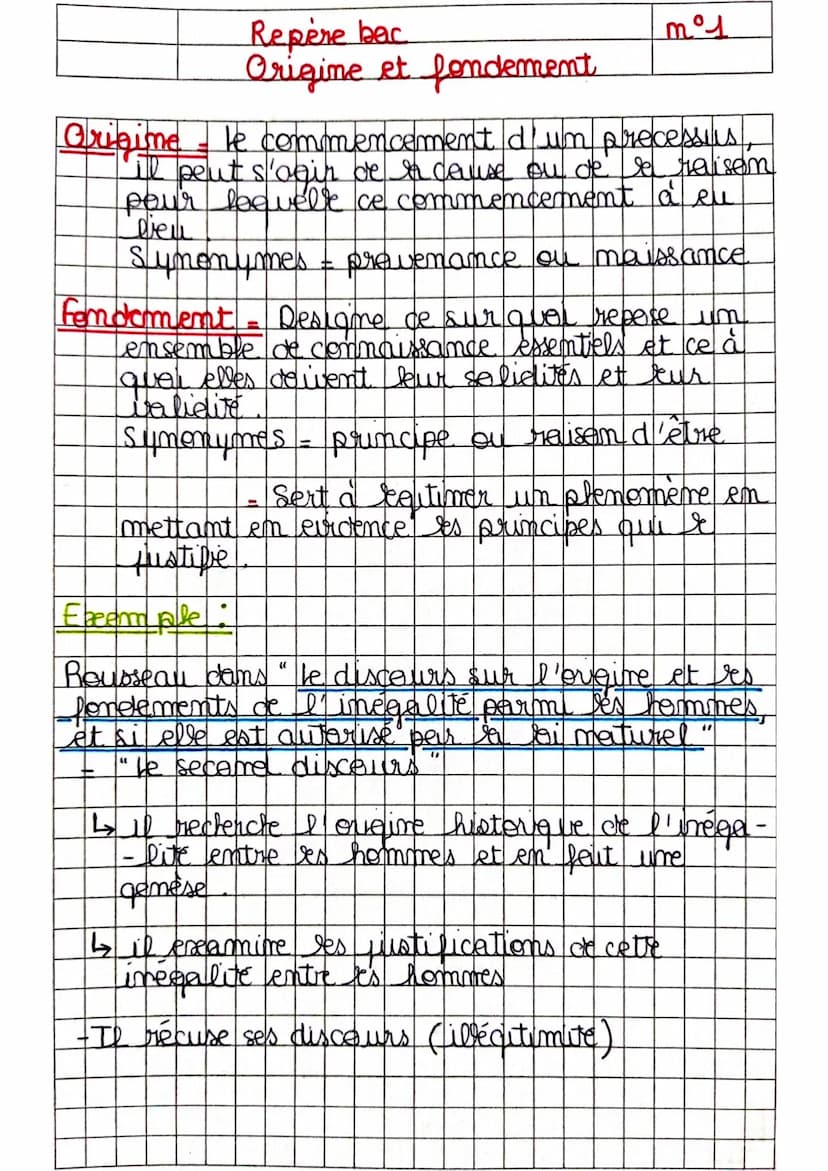 Repère bac
n°1
Origine et fondement
Origine = le commencement d'un processus,
il peut s'agir de la cause ou de la raison
pour laquelle ce commencement à eu
lieu.
Synonymes = provenance ou naissance
Fondement = Designe ce sur quoi repose un
ensemble de connaissance essentiels et ce à
quoi elles doivent leur solidités et leur
validité.
Synonymes = principe ou raison d'être
= Sert à legitimer un phenomène en
mettant en evidence les principes qui le
justifie.
Exemple :
Rousseau dans "le discours sur l'origine et les
fondements de l'inégalité parmi les hommes,
et si elle est autorisé par la loi naturel"
= "le second discours"
↳ il recherche l'origine historique de l'inéga-
-lité entre les hommes et en fait une
genèse.
↳ il examine les justifications de cette
inégalité entre les hommes
-Il récuse ses discours (illégitimité)